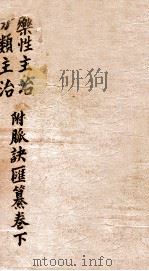 藥性主治
方類主治
附脈訣匯纂卷下